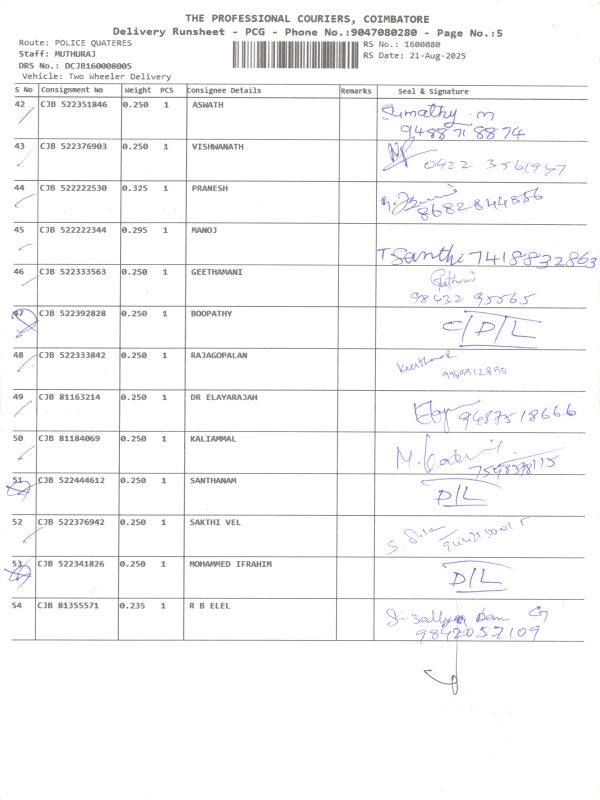 THE PROFESSIONAL COURIERS, COIMBATORE
Delivery Runsheet - PCG - Phone No.:9047080280 - Page No.:5
Route: POLICE QUATERES
Staff: MUTHURAJ
DRS No.: DCJB160008005
Vehicle: Two Wheeler Delivery
RS No.: 1600080
RS Date: 21-Aug-2025
S No Consignment No Weight PCS Consignee Details Remarks Seal & Signature
42 CJB 522351846 0.250 1 ASWATH Sumathy.m
9488718874
43 CJB 522376903 0.250 1 VISHWANATH 0422 3561947
44 CJB 522222530 0.325 1 PRANESH
8682844556
45 CJB 522222344 0.295 1 MANOJ
T Santhi 7418832863
46 CJB 522333563 0.250 1 GEETHAMANI
98432 95565
47 CJB 522392828 0.250 1 BOOPATHY C/D/L
48 CJB 522333842 0.250 1 RAJAGOPALAN
49 CJB 81163214 0.250 1 DR ELAYARAJAH
9487518666
50 CJB 81184069 0.250 1 KALIAMMAL
51 CJB 522444612 0.250 1 SANTHANAM D/L
52 CJB 522376942 0.250 1 SAKTHI VEL
53 CJB 522341826 0.250 1 MOHAMMED IFRAHIM D/L
54 CJB 81355571 0.235 1 R B ELEL
9842057109